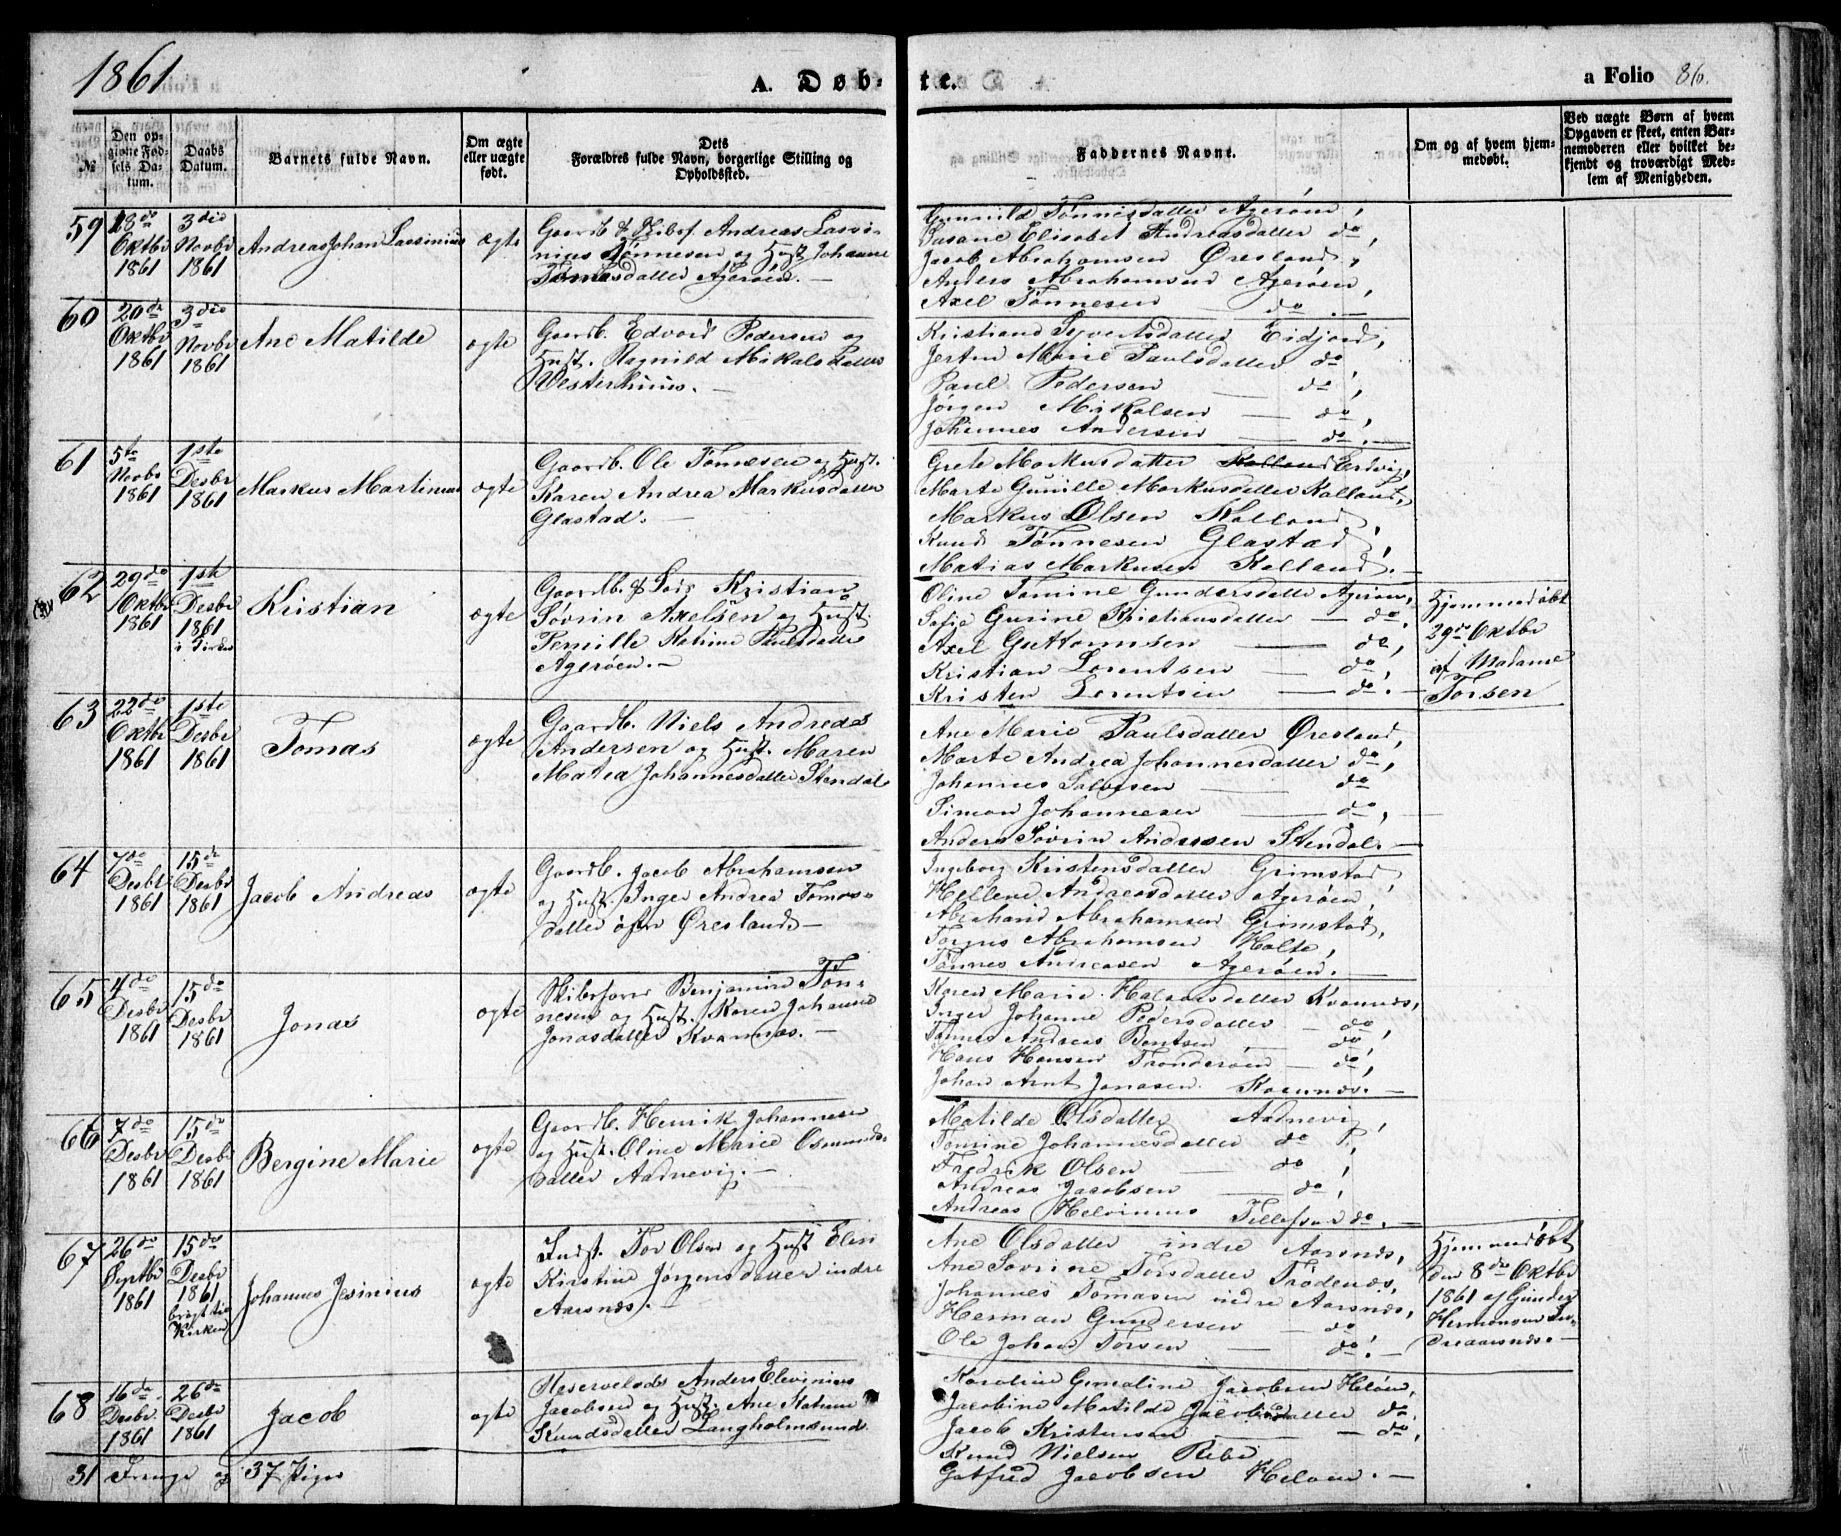 1861
A. Døb-
te.
a Folio 86.
№
Den op-
givne Fød-
sels Da-
tum.
Daabs
Datum.
Barnets fulde Navn.
Om ægte
eller uægte
født.
Dets
Forældres fulde Navn, borgerlige Stilling og
Opholdssted.
Faddernes Navne.
Om og af hvem hjem-
medøbt.
Ved uægte Børn af hvem
Opgaven er skeet, enten Bar-
nemoderen eller hvilket be-
kjendt og troværdigt Med-
lem af Menigheden.
59
Oktbr
1861
3die
Novbr
1861
Andreas Johan Lassinius
ægte
Gaardb. & Skibsf Andreas Lassi-
nius Tønnesen og Hust Johanne
Tomasdatter Agerøen. —
Gunnild Tønnisdatter Agerøen,
Susane Elisabet Andreasdatter do,
Jacob Abrahamsen Øresland,
Anders Abrahamsen Agerøen,
Axel Tønnesen do. —
60
20de
Oktbr
1861
3die
Novbr
1861
Ane Matilde
ægte
Gaardb. Edvard Pedersen og
Hust. Ragnild Mikalsdatter
Vesterhuus. —
Kristiane Syvertsdatter Eidjord,
Jerten Marie Paulsdatter do,
Paul Pedersen — do,
Jørgen Mikalsen — do,
Johannes Andersen — do. —
61
5te
Novbr
1861
1ste
Desbr
1861
Markus Martinius
ægte
Gaardb. Ole Tønnesen og Hust.
Karen Andrea Markusdatter
Glastad. —
Grete Markusdatter Kalland
Marte Gunille Markusdatter Kalland,
Markus Olsen Kalland,
Knud Tønnesen Glastad,
Matias Markusen Kalland. —
62
29de
Oktbr
1861
1ste
Desbr
1861
i Kirken
Kristian
ægte
Gaardb. & Lods Kristian
Søvrin Axelsen og Hust.
Pernille Katrine Paulsdatter
Agerøen. —
Oline Tomine Gundersdatter Agerøen,
Sofie Gurine Kristiansdatter — do,
Axel Guttormsen — do,
Kristian Lorentsen — do,
Kristen Lorentsen — do. —
Hjemmedøbt
29de Oktbr
af Madame
Torsen
63
22de
Oktbr
1861
1ste
Desbr
1861
Tomas
ægte
Gaardb. Niels Andreas
Andersen og Hust. Maren
Matea Johannesdatter Stendal
Ane Marie Paulsdatter Øresland,
Marte Andrea Johannesdatter do,
Johannes Salvesen — do
Simon Johannesen — do,
Anders Søvrin Andersen Stendal. —
64
7de
Desbr
1861
15de
Desbr
1861
Jacob Andreas
ægte
Gaardb. Jacob Abrahamsen
og Hust. Inger Andrea Tomas-
datter øfre Øresland —
Ingeborg Kristensdatter Grimstad,
Hellene Andreasdatter Agerøen,
Abraham Abrahamsen Grimstad,
Torjus Abrahamsen Holte,
Tønnes Andreasen Agerøen. —
65
4de
Desbr
1861
15de
Desbr
1861
Jonas
ægte
Skibsfører Benjamin Tøn-
nesen og Hust. Karen Johanne
Jonasdatter Kvannæs. —
Karen Marie Kvannæs,
Inger Johanne Pedersdatter — do
Tønnes Andreas Bentsen do,
Hans Hansen Trønderøen do,
Johan Arnt Jonasen Kvannæs. —
66
7de
Desbr
1861
15de
Desbr
1861
Bergine Marie
ægte
Gaardb. Henrik Johannesen
og Hust. Oline Marie Osmunds-
datter Aadnevig. —
Matilde Olsdatter Aadnevig,
Tomine Johannesdatter do,
Fredrik Olsen — do,
Andreas Jacobsen — do,
Andreas Helvinius Tellefsen do. —
67
26de
Septbr
1861
15de
Desbr
1861
bragt til
Kirken
Johannes Jesinius
ægte
Indst. Tor Olsen og Hust Elen
Kirstine Jørgensdatter indre
Aarsnæs. —
Ane Olsdatter indre Aarsnæs,
Ane Søvrine Torsdatter Trødenæs,
Johannes Tomasen indre Aarsnæs,
Herman Gundersen — do
Ole Johan Torsen — do. —
Hjemmedøbt
den 8de Oktbr
1861 af Gunder
Hermansen In-
dreaarsnæs. —
68
16de
Desbr.
1861
26de
Desbr
1861
Jacob
ægte
Reservelods Anders Elevinius
Jacobsen og Hust. Ane Katrine
Knudsdatter Langholmsund
Karoline Gunaline Jacobsen Heløen,
Jacobine Matilde Jacobsdatter do.
Jacob Kristensen — do,
Knud Nielsen Ribe
Gotfred Jacobsen Heløen. —
31 Drenge og 37 Piger